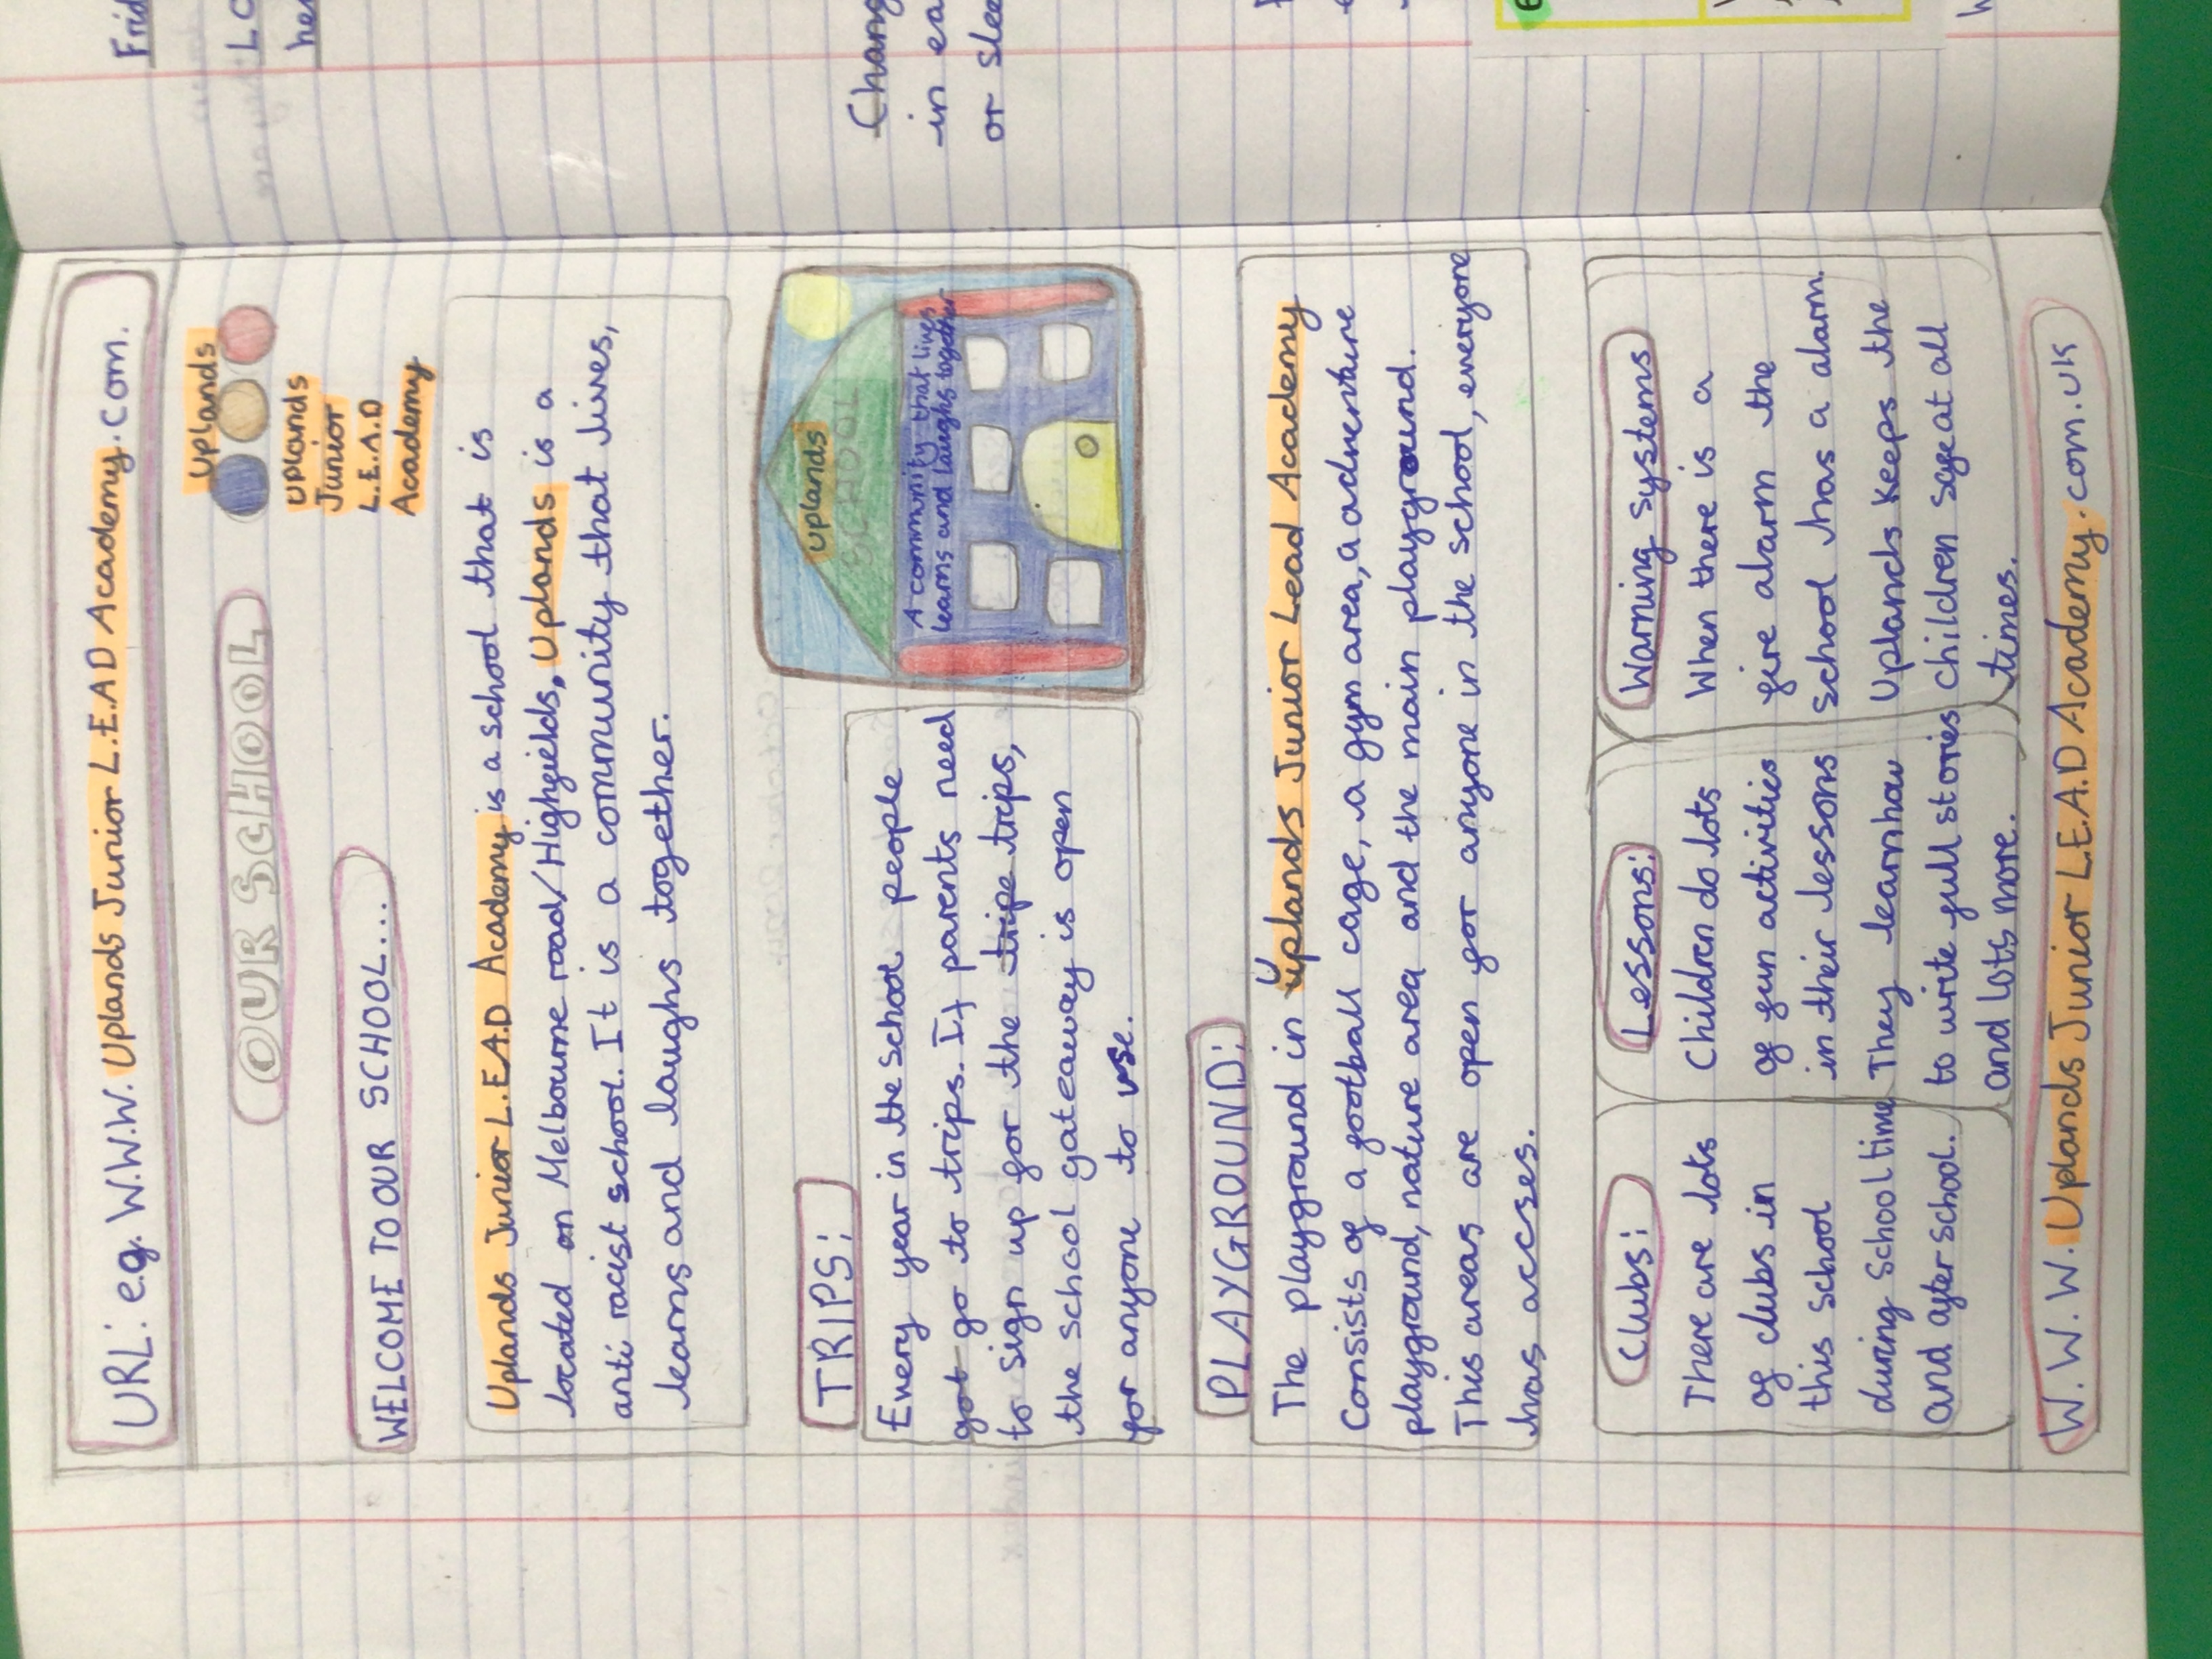 URL: e.g. W.W.W. Uplands Junior L.E.A.D Academy.com.
Uplands
OUR SCHOOL
Uplands
Junior
L.E.A.D
Academy
WELCOME TO OUR SCHOOL...
Uplands Junior L.E.A.D Academy is a school that is
located on Melbourne road/Highfields. Uplands is a
anti racist school. It is a community that lives,
learns and laughs together.
TRIPS:
Every year in the school people
got go to trips. If parents need
to sign up for the tripe trips,
the school gateaway is open
for anyone to use.
Uplands
SCHOOL
A community that lives
learns and laughs together
PLAYGROUND:
The playground in Uplands Junior Lead Academy
Consists of a football cage, a gym area, a adventure
playground, nature area and the main playground.
This areas are open for anyone in the school, everyone
has accses.
Clubs:
There are lots
of clubs in
this school
during School time
and after school.
Lessons:
Children do lots
of fun activities
in their lessons
They learn how
to write full stories
and lots more.
Warning systems
When there is a
fire alarm the
school has a alarm.
Uplands keeps the
children safe at all
times.
W.W.W. Uplands Junior L.E.A.D Academy.com.uk
Chang
in ea
or slee